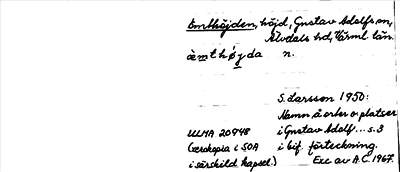 Emthöjden, höjd, Gustav Adolfs sn,
Älvdals hd, Värml. län.
æ̀mthøyda n.
S. Larsson 1950:
Namn å orter o. platser
i Gustav Adolf... s. 3
i bif. förteckning.
Exc av A.C. 1967.
ULMA 20948
(xerokopia i SOA
i särskild kapsel.)